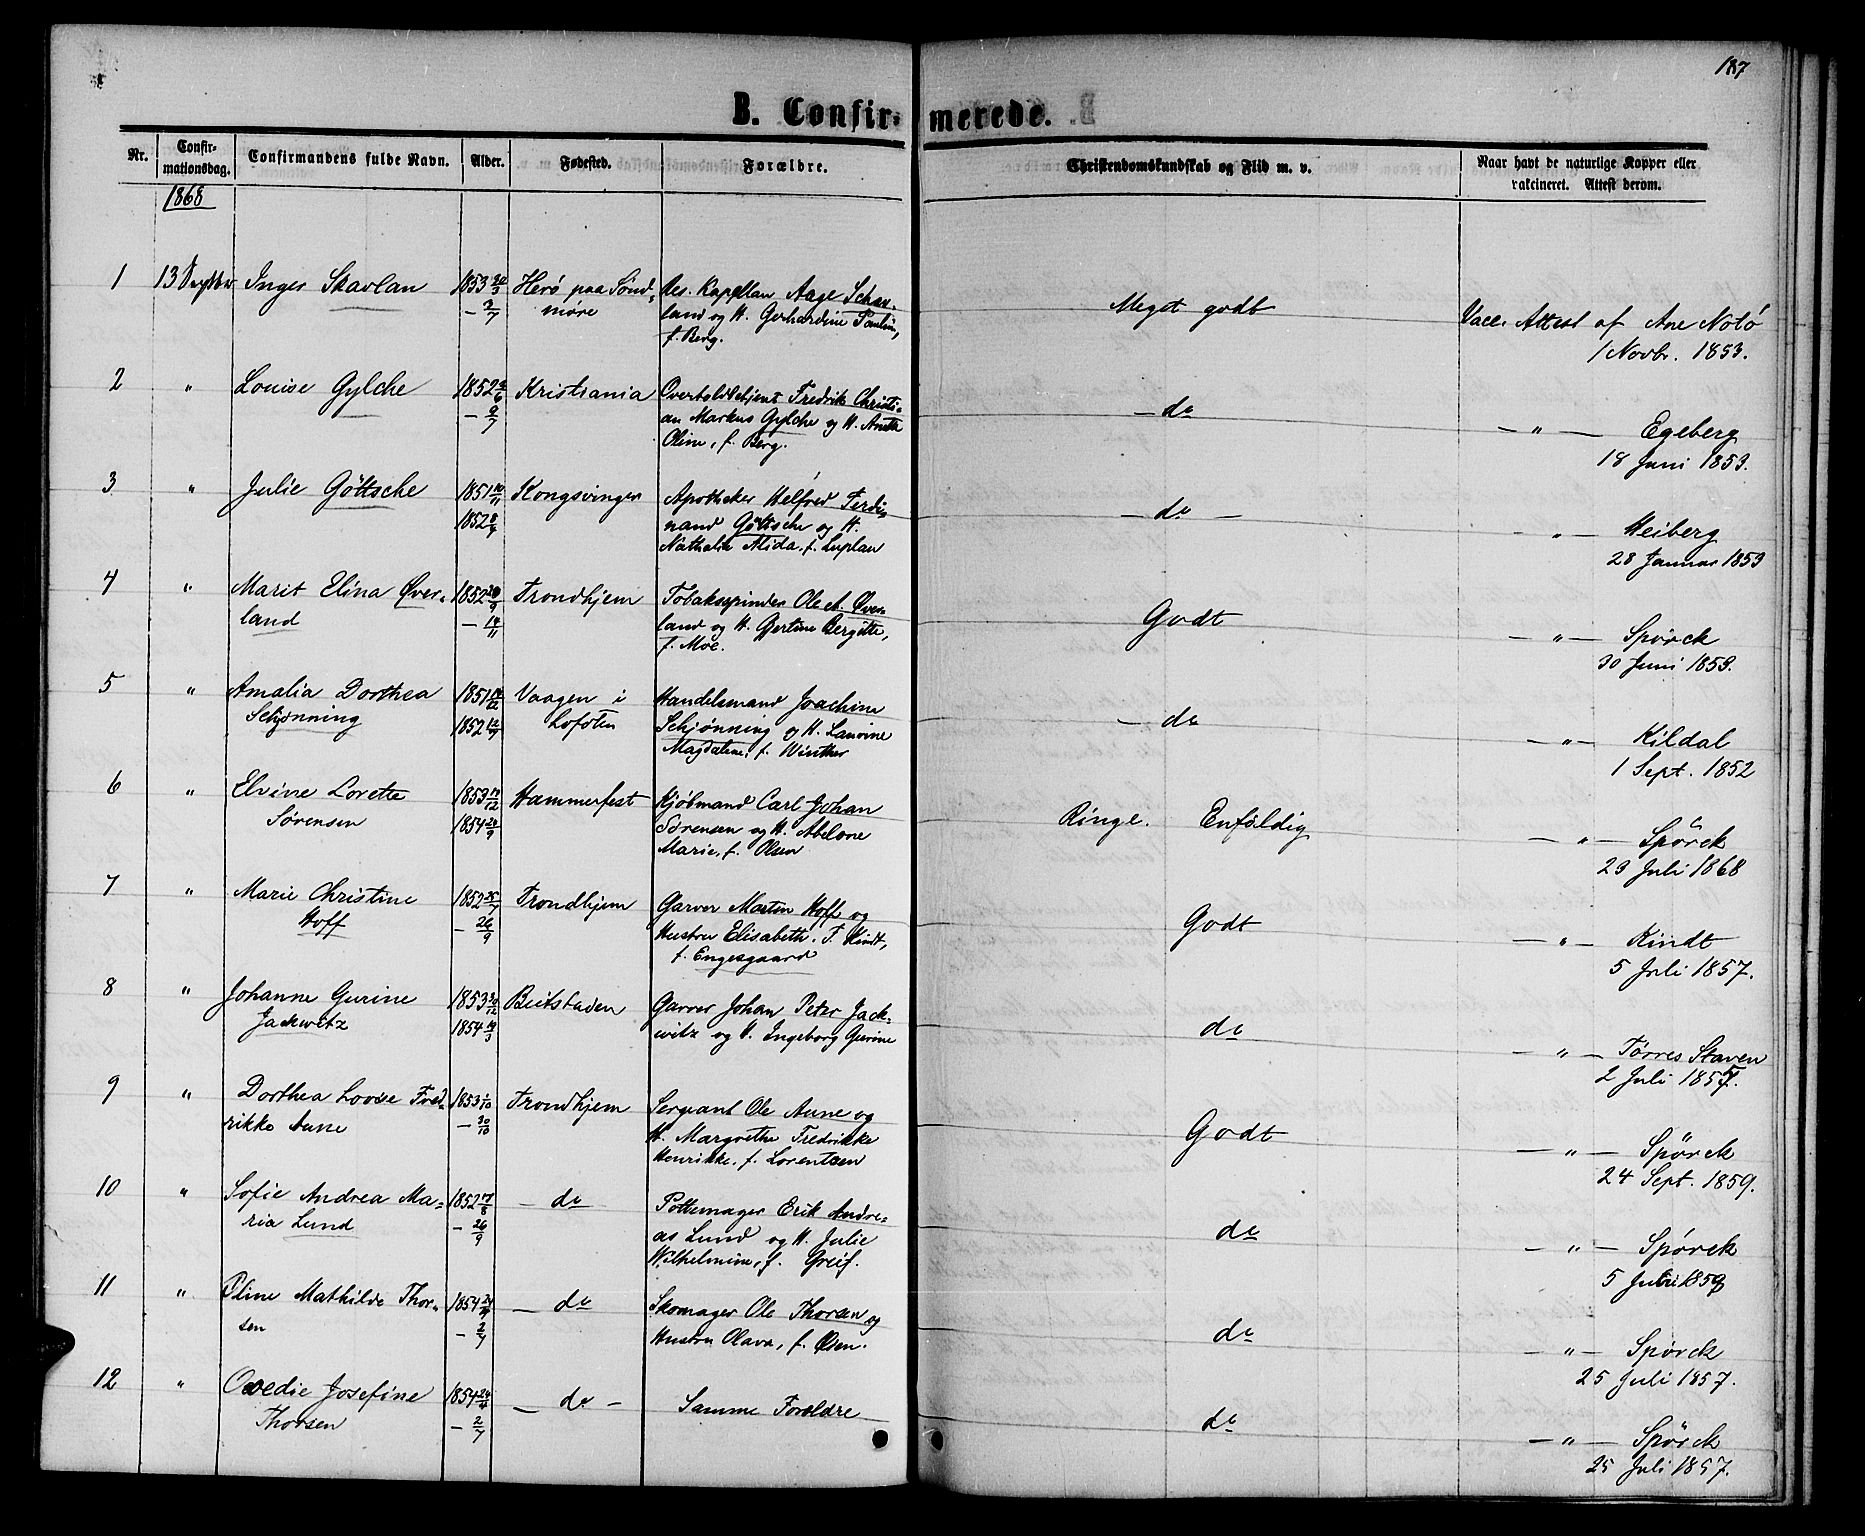 187
B. Confirmerede.
Nr. Confirmationsdag. Confirmandens fulde Navn. Alder. Fødested. Forældre. Christendomskundskab og Flid m. v. Naar havt de naturlige Kopper eller vakcineret. Attest derom.
1868
1 13 Septbr Inger Skavlan 1853 30/3 Herø paa Sønd- Res. Kapellan Aage Schav-
- 2/7 møre land og H. Gerhardine Paulin,
f. Berg.
Meget godt Vacc. Attest af Ane Notø
1 Novbr. 1853.
2 " Louise Gylche 1852 Kristiania Overtoldbetjent Fredrik Christi-
- 9/7 an Markus Gylche og H. Anette
Oline, f. Berg.
- do - " - Egeberg
18 Juni 1853.
3 " Julie Göttsche 1851 10/11 Kongsvinger Apotheker Helfred Ferdi-
1852 nand Göttsche og H.
Nathalie Alida, f. Luplau
- do - - " - Heiberg
28 Januar 1853
4 " Marit Elina Øver- 1852 Trondhjem Tobaksspinder Ole A. Øver-
land - 14/11 land og H. Gjertine Bergitte,
f. Moe.
Godt - " - Spörck
30 Juni 1853.
5 " Amalia Dorthea 1851 Vaagen i Handelsmand Joachim
Schjønning 1852 Lofoten Schjønning og H. Lavine
Magdalene, f. Winther
- do - " - Kildal
1 Sept. 1852
6 " Elvine Lorette 1853 Hammerfest Kjøbmand Carl Johan
Sørensen 1854 Sørensen og H. Abelone
Marie, f. Olsen
Ringe. Enfoldig - " - Spörck
29 Juli 1868
7 " Marie Christine 1852 Trondhjem Garver Martin Hoff og
Hoff - 26/9 Hustru Elisabeth. F. Kindt,
f. Engesgaard
Godt - " - Kindt
5 Juli 1857.
8 " Johanne Gurine 1853 Beitstaden Garver Johan Peter Jack-
Jackwitz 1854 witz og H. Ingeborg Gurine
do - " - Tørres Staven
2 Juli 1857.
9 " Dorthea Lovise Fred- 1853 1/10 Trondhjem Sergeant Ole Aune og
rikke Aune - 30/10 H. Margrethe Fredrikke
Henrikke, f. Lorentzen
Godt - " - Spörck
24 Sept. 1859.
10 " Sofie Andrea Ma- 1852 - do Pottemager Erik Andre-
ria Lund - 26/9 as Lund og H. Julie
Wilhelmine, f. Greif.
do - " - Spörck
5 Juli 1859
11 " Oline Mathilde Thor- 1854 - do Skomager Ole Thorsen og
sen - 2/7 Hustru Olava, f. Olsen.
do - " - Spörck
25 Juli 1857.
12 " Ovedie Josefine 1854 - do - Samme Forældre
Thorsen - 2/7
do - " - Spörck
25 Juli 1857.